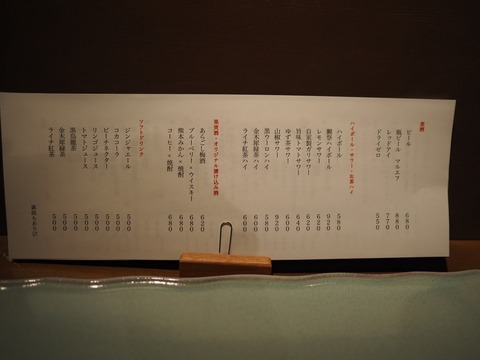 麦酒
ビール 680
瓶ビール マルエフ 880
レッドアイ 770
ドライゼロ 550
ハイボール・サワー・お茶ハイ
ハイボール 580
獺祭ハイボール 920
レモンサワー 620
自家製ガリサワー 620
旨味トマトサワー 640
ゆず茶サワー 600
山椒サワー 920
黒ウーロンハイ 580
金木犀緑茶ハイ 600
ライチ紅茶ハイ 600
果実酒・オリジナル漬け込み酒
あらごし梅酒 620
ブルーベリー×ウイスキー 680
熊本みかん×焼酎 680
コーヒー×焼酎 680
ソフトドリンク
ジンジャエール 500
コカコーラ 500
ピーチネクター 500
リンゴジュース 500
トマトジュース 500
黒烏龍茶 500
金木犀緑茶 500
ライチ紅茶 500
裏面もあり